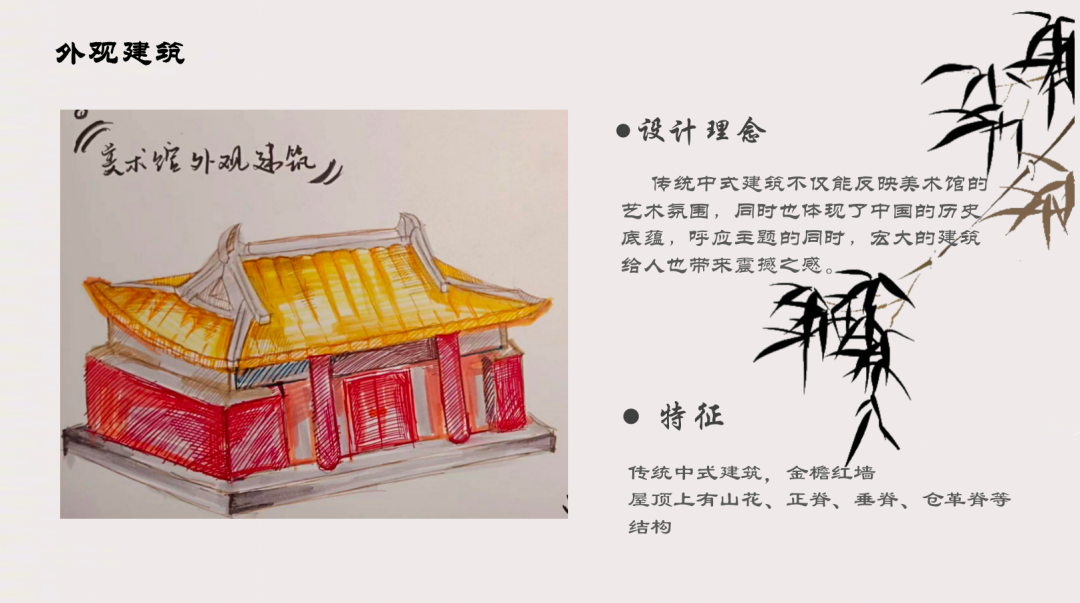 外观建筑
美术馆外观建筑
●设计理念
传统中式建筑不仅能反映美术馆的
艺术氛围，同时也体现了中国的历史
底蕴，呼应主题的同时，宏大的建筑
给人也带来震撼之感。
● 特征
传统中式建筑，金檐红墙
屋顶上有山花、正脊、垂脊、仓革脊等
结构